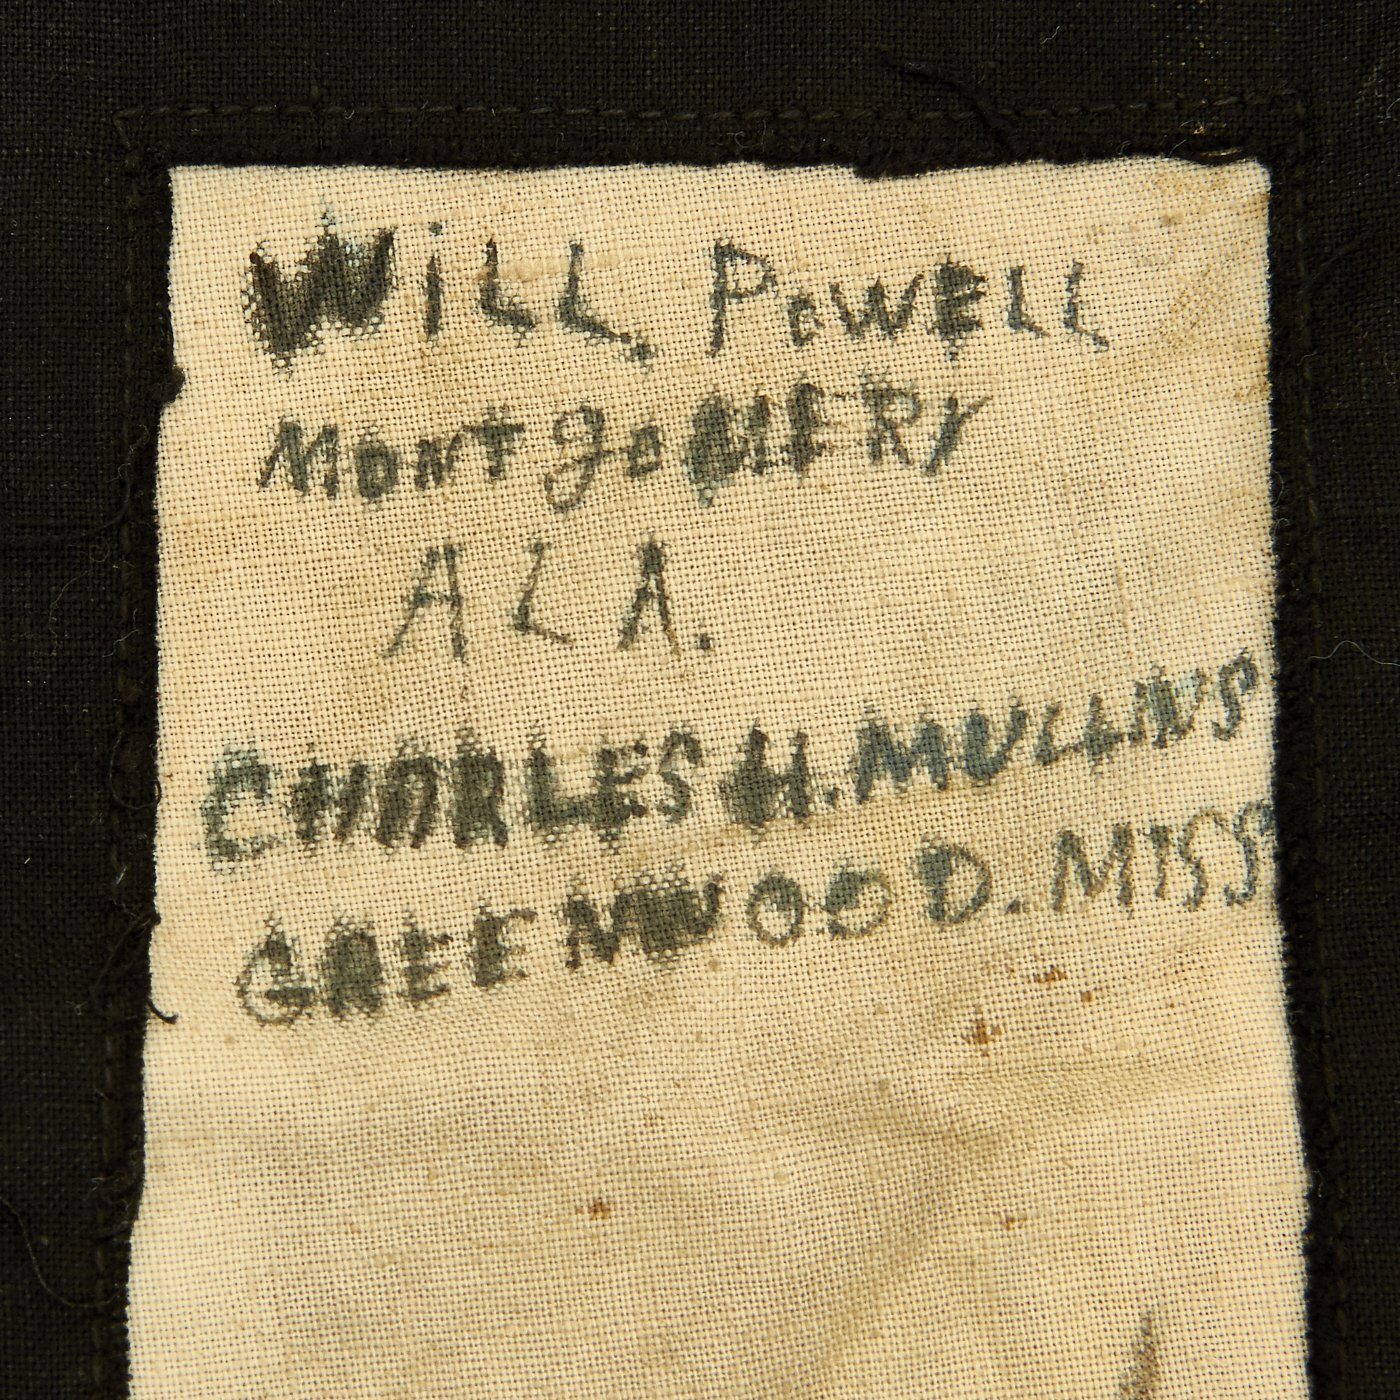 WiLL POWELL
MONTgOMERY
ALA.
CHARLES H. MULLINS
GREENWOOD. MISS